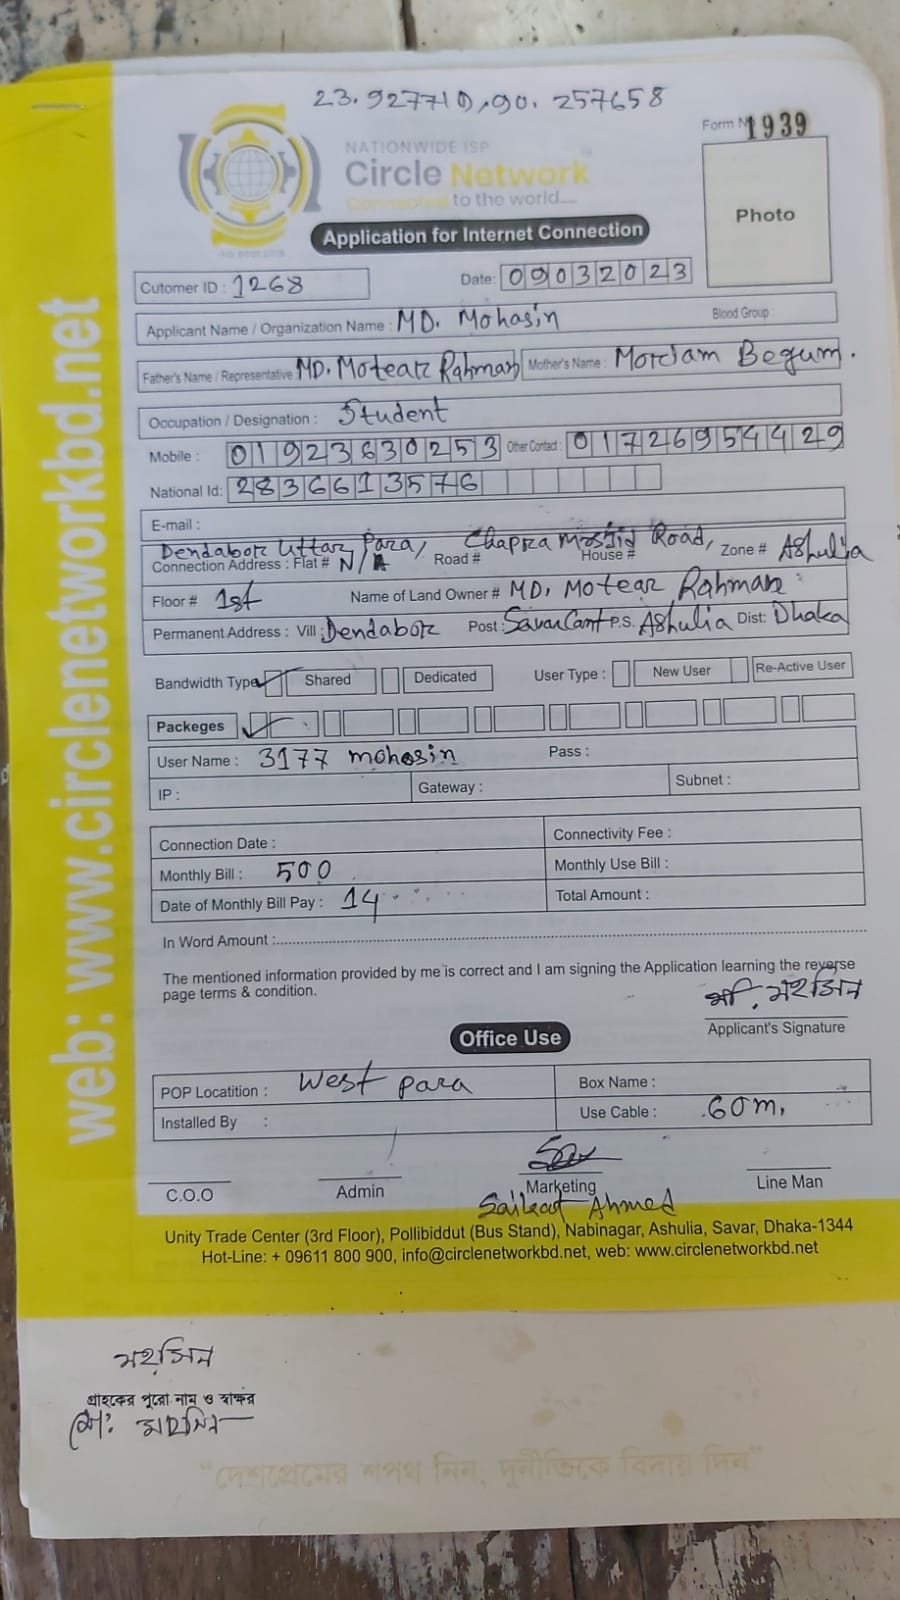 23.927710,90.257658
Form No 1939
NATIONWIDE ISP
Circle Network
Connected to the world....
ISO 9001:2015
Photo
Application for Internet Connection
Cutomer ID : 1268 Date: 09032023
Applicant Name / Organization Name : MD. Mohasin Blood Group :
Father's Name / Representative MD. Motear Rahman Mother's Name : Mordam Begum.
Occupation / Designation : Student
Mobile : 01923630253 Other Contact : 01726954429
National Id: 2836613576
E-mail :
Dendabor Uttar Para, Chapra Road, Zone # Ashulia
Connection Address : Flat # N/A Road # House #
Floor # 1st Name of Land Owner # MD. Motear Rahman
Permanent Address : Vill : Dendabor Post : Savar Cant P.S. Ashulia Dist: Dhaka
Bandwidth Type Shared Dedicated User Type : New User Re-Active User
Packeges
User Name : 3177 mohosin Pass :
IP : Gateway : Subnet :
Connection Date : Connectivity Fee :
Monthly Bill : 500 Monthly Use Bill :
Date of Monthly Bill Pay : 14 Total Amount :
In Word Amount :
The mentioned information provided by me is correct and I am signing the Application learning the reverse
page terms & condition.
মো. মহসিন
Applicant's Signature
Office Use
POP Locatition : West para Box Name :
Installed By : Use Cable : 60m.
C.O.O Admin Marketing Line Man
Saikat Ahmed
Unity Trade Center (3rd Floor), Pollibiddut (Bus Stand), Nabinagar, Ashulia, Savar, Dhaka-1344
Hot-Line: + 09611 800 900, info@circlenetworkbd.net, web: www.circlenetworkbd.net
web: www.circlenetworkbd.net
মহসিন
গ্রাহকের পুরো নাম ও স্বাক্ষর
মো: মহসিন
"দেশপ্রেমের শপথ নিন, দুর্নীতিকে বিদায় দিন"